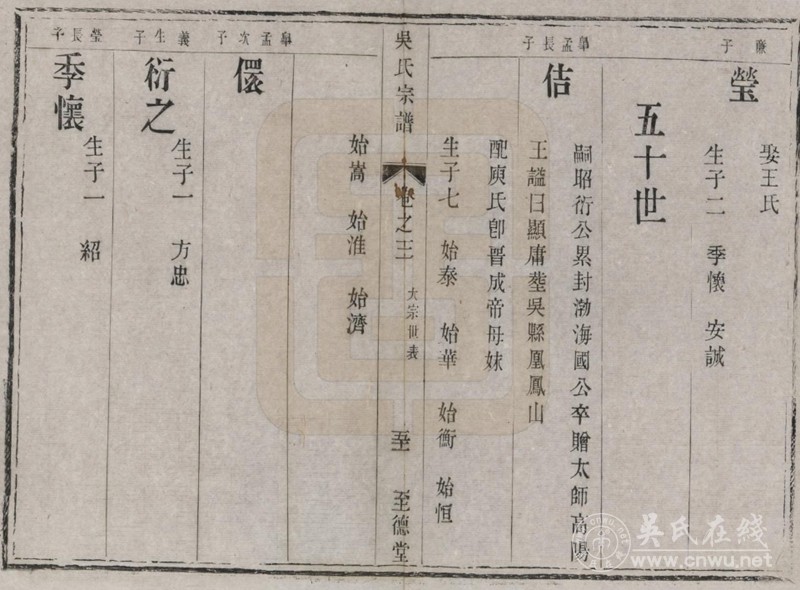 廉子
瑩
娶王氏
生子二　季懷　安誠
五十世
舉孟長子
佶
嗣昭衍公累封渤海國公卒贈太師高陽
王謚曰顯庸塟吳縣凰鳳山
配庾氏卽晋成帝母妹
生子七　始泰　始華　始衡　始恒
吳氏宗譜
卷之三
大宗世表
至德堂
始嵩　始淮　始濟
舉孟次子
儇
義生子
衍之
生子一　方忠
瑩長子
季懷
生子一　紹
吳氏在线
www.cnwu.net